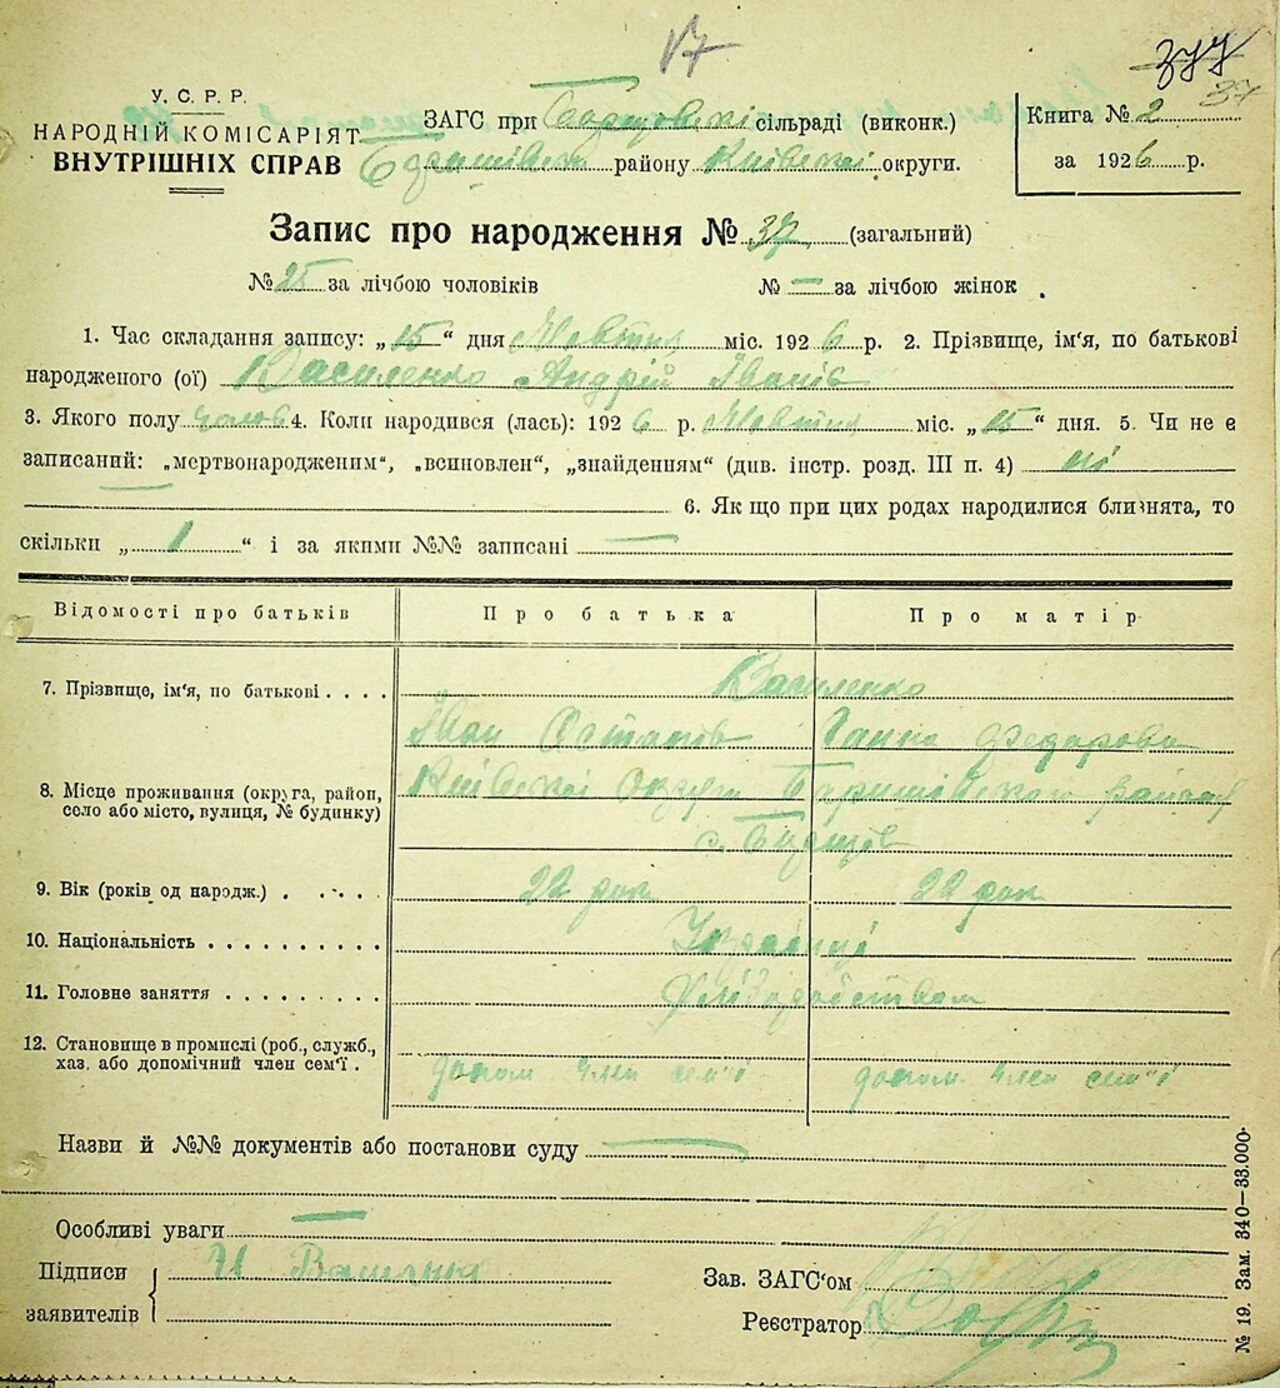 17
377
37
У. С. Р. Р.
НАРОДНІЙ КОМІСАРІЯТ
ВНУТРІШНІХ СПРАВ
ЗАГС при Борщовскі сільраді (виконк.)
району Київскої округи.
Книга № 2
за 1926 р.
Запис про народження № 37 (загальний)
№ 25 за лічбою чоловіків № — за лічбою жінок
1. Час складання запису: „15“ дня Жовтня міс. 1926 р. 2. Прізвище, ім'я, по батькові
народженого (ої) Василенко Андрій Іванів
3. Якого полу чолов 4. Коли народився (лась): 1926 р. Жовтня міс. „15“ дня. 5. Чи не є
записаний: „мертвонародженим“, „всиновлен“, „знайденням“ (див. інстр. розд. III п. 4) ні
— 6. Як що при цих родах народилися близнята, то
скільки „1“ і за якими №№ записані —
Відомості про батьків Про батька Про матір
7. Прізвище, ім'я, по батькові . . . . Василенко
Іван Остапів Ганна Федорова
8. Місце проживання (округа, район, село або місто, вулиця, № будинку) Київскої Округи Баришівського району
с. Борщів
9. Вік (років од нардж.) . . . . . 22 рок 22 рок
10. Національність . . . . . . . . . . Українці
11. Головне заняття . . . . . . . . . Хліборобством
12. Становище в промислі (роб., служб., хаз. або допомічний член сем'ї . допом член сем"ї допом. член сем"ї
Назви й №№ документів або постанови суду —
Особливі уваги —
Підписи
заявителів
И Василенко
Зав. ЗАГС'ом
Реєстратор
№ 19. Зам. 340—33.000·